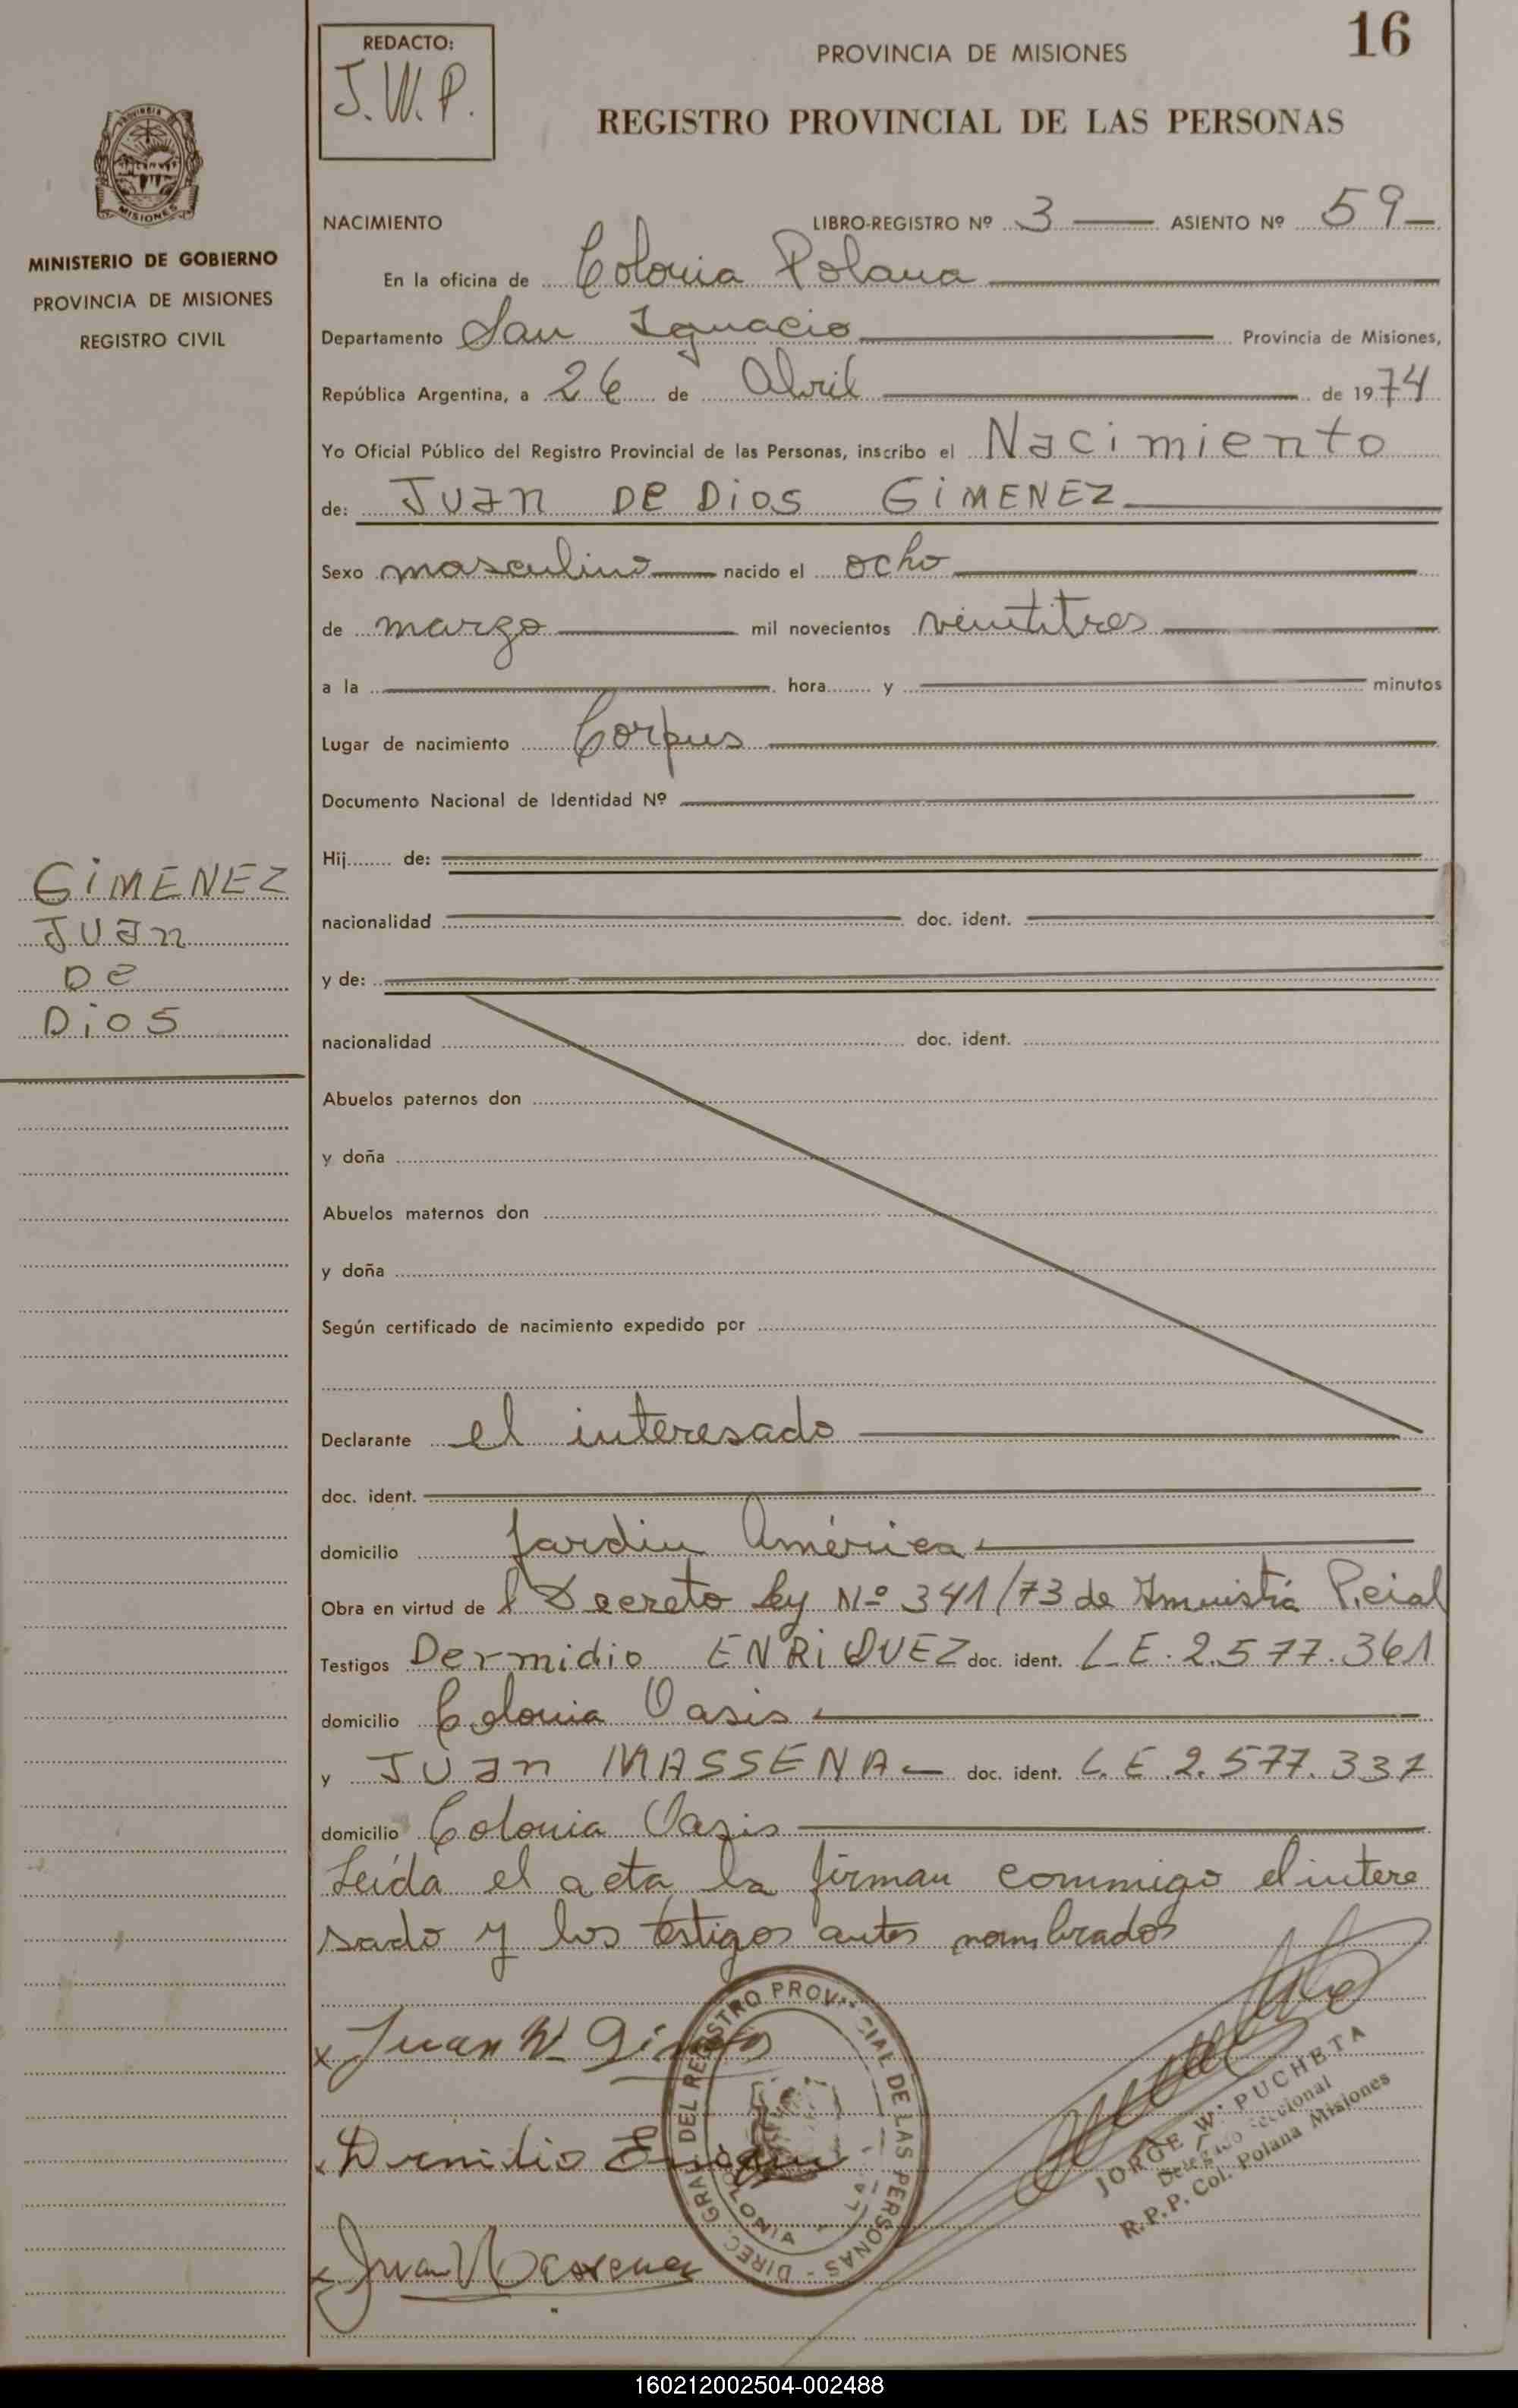 REDACTO:
J.W.P.
PROVINCIA DE MISIONES
16
REGISTRO PROVINCIAL DE LAS PERSONAS
MISIONES
MINISTERIO DE GOBIERNO
PROVINCIA DE MISIONES
REGISTRO CIVIL
NACIMIENTO LIBRO-REGISTRO Nº 3 ASIENTO Nº 59
En la oficina de Colonia Polana
Departamento San Ignacio Provincia de Misiones,
República Argentina, a 26 de Abril de 1974
Yo Oficial Público del Registro Provincial de las Personas, inscribo el Nacimiento
de: JUAN DE DIOS GIMENEZ
Sexo masculino nacido el ocho
de marzo mil novecientos veintitres
a la hora y minutos
Lugar de nacimiento Corpus
Documento Nacional de Identidad Nº
Hij de:
nacionalidad doc. ident.
y de:
nacionalidad doc. ident.
Abuelos paternos don
y doña
Abuelos maternos don
y doña
Según certificado de nacimiento expedido por
GIMENEZ
JUAN
DE
DIOS
Declarante el interesado
doc. ident.
domicilio Jardin América
Obra en virtud de l Decreto Ley Nº 341/73 de Amnistía P.cial
Testigos Dermidio ENRIQUEZ doc. ident. L.E. 2.577.361
domicilio Colonia Oasis
y JUAN MASSENA doc. ident. L.E. 2.577.337
domicilio Colonia Oasis
Leída el acta la firman commigo el intere
sado y los testigos antes nombrados
x Juan
Dermidio
x Juan Massena
DIREC. GRAL DEL REGISTRO PROVINCIAL DE LAS PERSONAS
COLONIA
JORGE W. PUCHETA
Delegado Seccional
R.P.P. Col. Polana Misiones
160212002504-002488